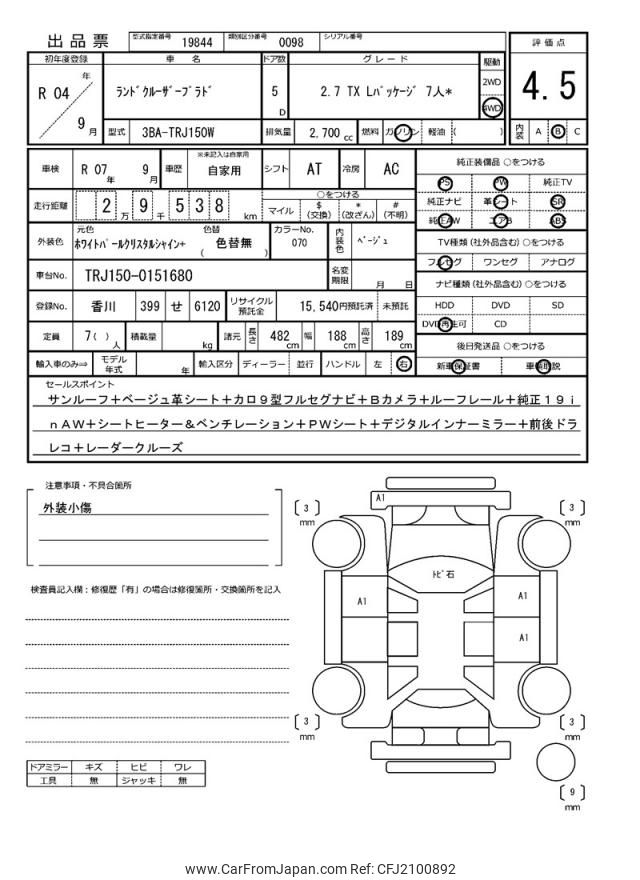 出品票 型式指定番号 19844 類別区分番号 0098 シリアル番号
評価点
4.5
内装 A B C
初年度登録 車名 ドア数 グレード 駆動
R 04 年 9 月
ﾗﾝﾄﾞｸﾙｰｻﾞｰﾌﾟﾗﾄﾞ 5 D 2.7 TX Lﾊﾟｯｹｰｼﾞ 7人*
2WD
4WD
型式 3BA-TRJ150W 排気量 2,700 cc 燃料 ガソリン 軽油 ( )
車検 R 07 年 9 月 車歴 ※未記入は自家用 自家用 シフト AT 冷房 AC
走行距離 2 万 9 千 5 3 8 km
○をつける
マイル $(交換) *(改ざん) #(不明)
外装色 元色 ﾎﾜｲﾄﾊﾟｰﾙｸﾘｽﾀﾙｼｬｲﾝ+ 色替 ( 色替無 ) カラーNo. 070 内装色 ﾍﾞｰｼﾞｭ
車台No. TRJ150-0151680 名変期限 月 日
登録No. 香川 399 せ 6120 リサイクル預託金 15,540円預託済 未預託
定員 7( ) 人 積載量 kg 諸元 長さ 482 cm 幅 188 cm 高さ 189 cm
輸入車のみ⇒ モデル年式 年 輸入区分 ディーラー 並行 ハンドル 左 右
純正装備品 ○をつける
PS PW 純正TV
純正ナビ 革シート SR
純正AW エアB ABS
TV種類(社外品含む) ○をつける
フルセグ ワンセグ アナログ
ナビ種類(社外品含む) ○をつける
HDD DVD SD
DVD再生可 CD
後日発送品 ○をつける
新車保証書 車輌取説
セールスポイント
サンルーフ＋ベージュ革シート＋カロ９型フルセグナビ＋Ｂカメラ＋ルーフレール＋純正１９ｉ
ｎＡＷ＋シートヒーター＆ベンチレーション＋ＰＷシート＋デジタルインナーミラー＋前後ドラ
レコ＋レーダークルーズ
注意事項・不具合箇所
外装小傷
検査員記入欄：修復歴「有」の場合は修復箇所・交換箇所を記入
ドアミラー キズ ヒビ ワレ
工具 無 ジャッキ 無
A1
[ 3 ] mm
[ 3 ] mm
ﾄﾋﾞ石
A1
A1
A1
[ 3 ] mm
[ 3 ] mm
[ 9 ] mm
www.CarFromJapan.com Ref: CFJ2100892